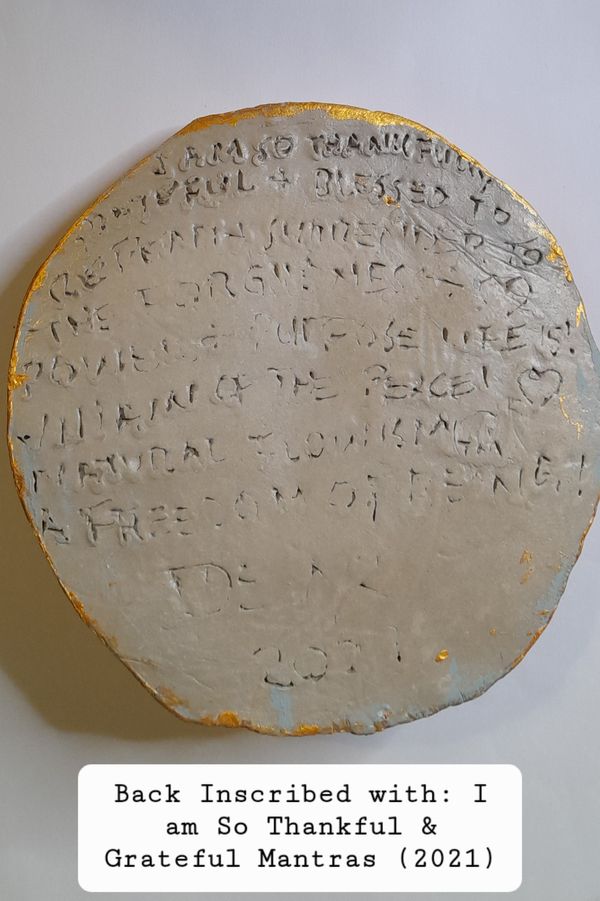 I AM SO THANKFULLY
GRATEFUL + BLESSED TO
REMAIN SURRENDERED
THE FORGIVENESS
POWER + PURPOSE LIFE IS!
OF THE PEACE!
NATURAL FLOW
A FREEDOM OF
2021
Back Inscribed with: I
am So Thankful &
Grateful Mantras (2021)